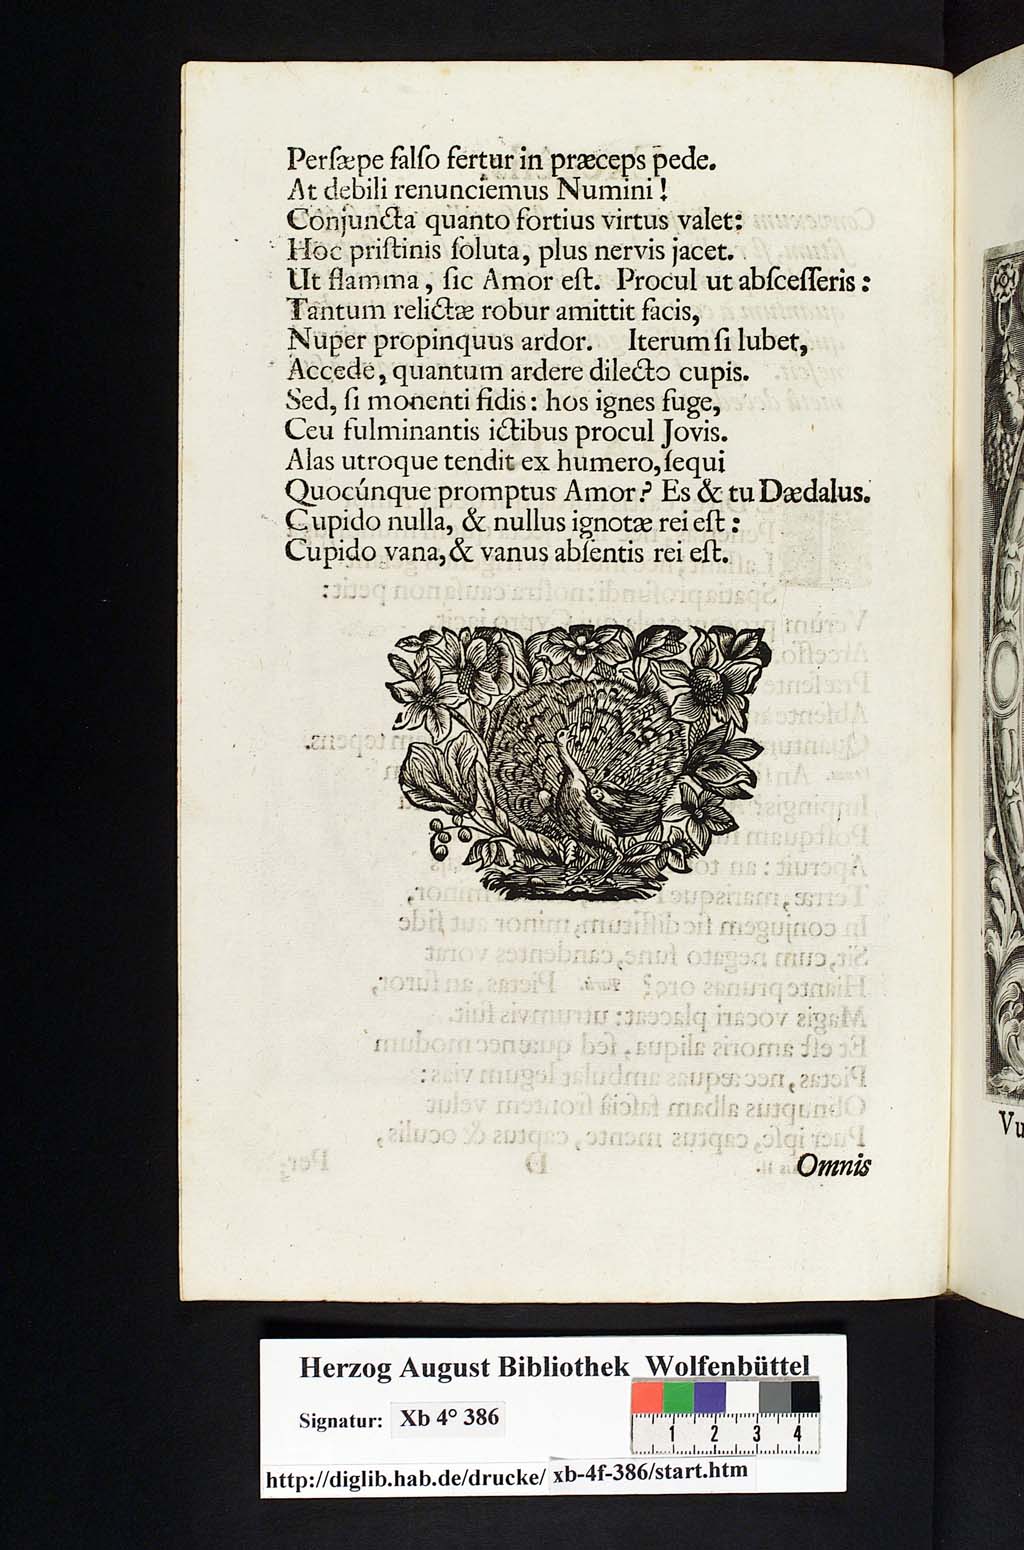 Perſæpe falſo fertur in præceps pede.
At debili renunciemus Numini!
Conjuncta quanto fortius virtus valet:
Hoc priſtinis ſoluta, plus nervis jacet.
Ut flamma, ſic Amor eſt. Procul ut abſceſſeris:
Tantum relictæ robur amittit facis,
Nuper propinquus ardor. Iterum ſi lubet,
Accede, quantum ardere dilecto cupis.
Sed, ſi monenti fidis: hos ignes fuge,
Ceu fulminantis ictibus procul Jovis.
Alas utroque tendit ex humero, ſequi
Quocúnque promptus Amor? Es & tu Dædalus.
Cupido nulla, & nullus ignotæ rei eſt:
Cupido vana, & vanus abſentis rei eſt.
Omnis
Vu
Herzog August Bibliothek Wolfenbüttel
Signatur: Xb 4° 386
1 2 3 4
http://diglib.hab.de/drucke/ xb-4f-386/start.htm